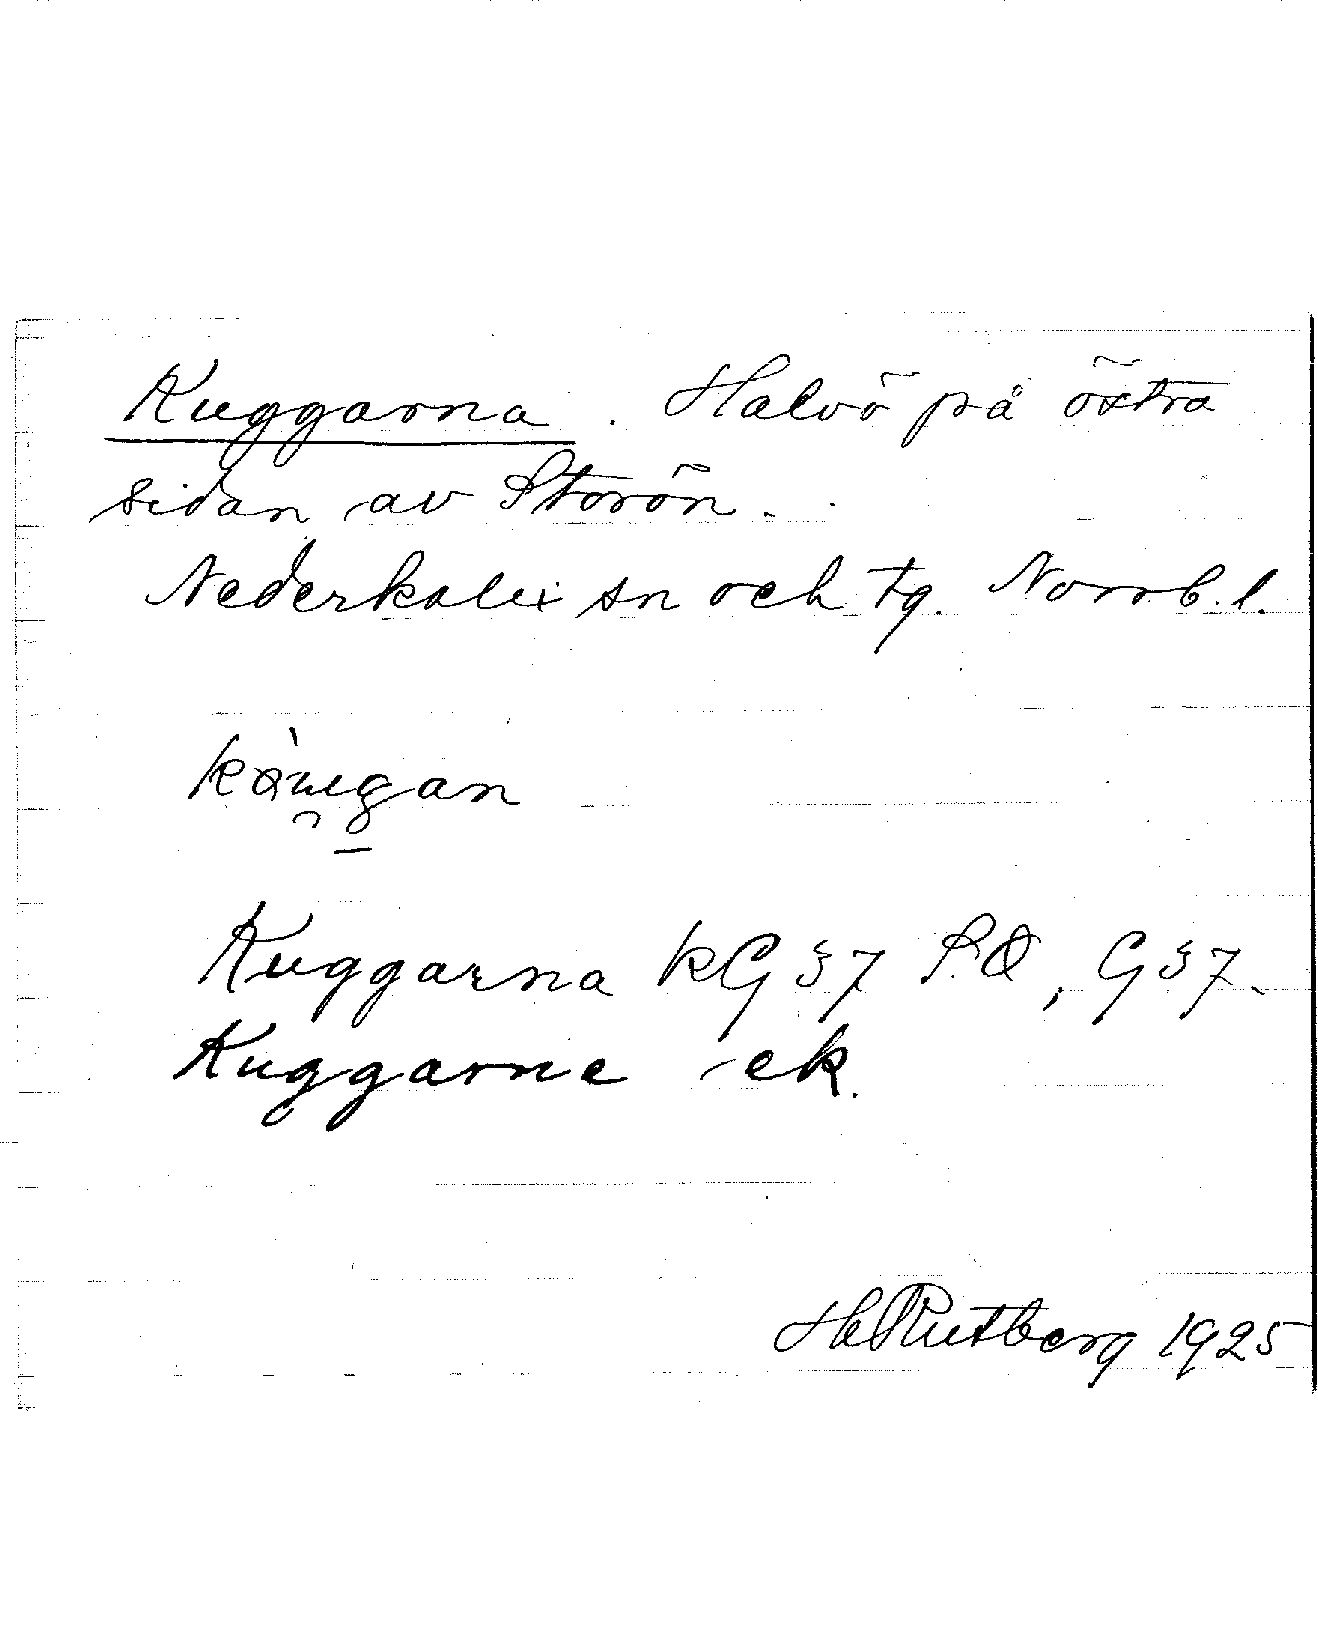 Kuggarna. Halvö på östra
sidan av Storön.
Nederkalix sn och tg. Norrb. l.
Kuggarna KG 37 S.O, G 37.
Kuggarne ek.
H Rutberg 1925